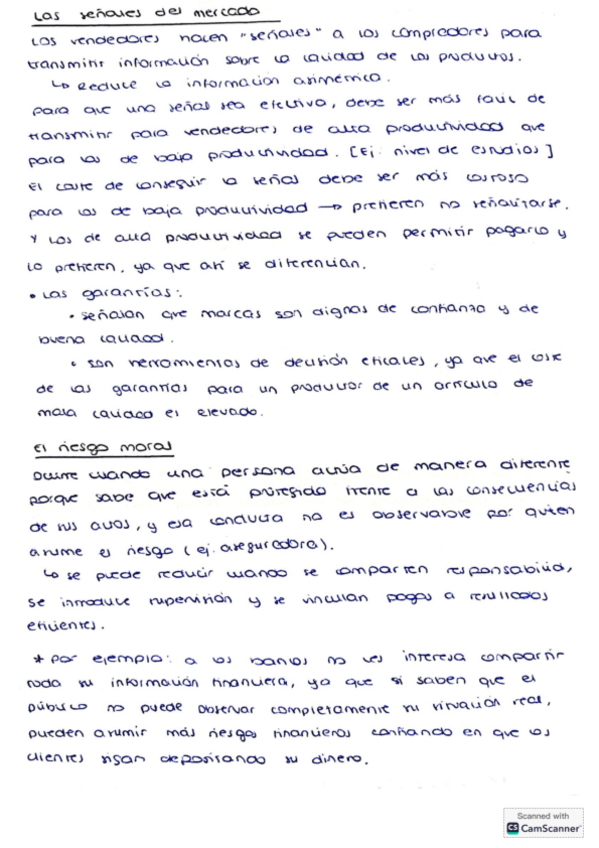 Las señales del mercado
Los vendedores hacen "señales" a los compradores para
transmitir información sobre la calidad de los productos.
↳ Reduce la información asimétrica.
para que una señal sea efectiva, debe ser más fácil de
transmitir para vendedores de alta productividad que
para los de baja productividad. [Ej: nivel de estudios]
El coste de conseguir la señal debe ser más costoso
para los de baja productividad → prefieren no señalizarse.
Y los de alta productividad se pueden permitir pagarlo y
lo prefieren, ya que ahí se diferencian.
• Las garantías:
• señalan que marcas son dignas de confianza y de
buena calidad.
• son herramientas de decisión eficaces, ya que el coste
de las garantías para un productor de un artículo de
mala calidad es elevado.
El riesgo moral
Ocurre cuando una persona actúa de manera diferente
porque sabe que está protegido frente a las consecuencias
de sus actos, y esa conducta no es observable por quien
asume el riesgo (ej. aseguradora).
↳ se puede reducir cuando se comparten responsabilid,
se introduce supervisión y se vinculan pagos a resultados
eficientes.
* por ejemplo: a los bancos no les interesa compartir
toda su información financiera, ya que si saben que el
público no puede observar completamente su situación real,
pueden asumir más riesgos financieros confiando en que los
clientes sigan depositando su dinero.
Scanned with
CS CamScanner